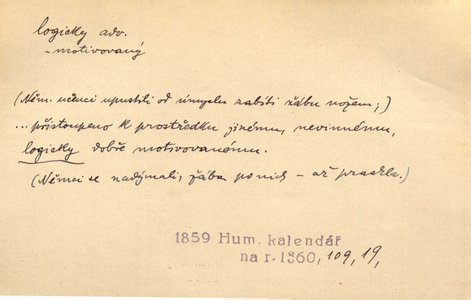 logicky adv.
-motivovaný
(Něm. učenci upustili od úmyslu zabíti žábu nožem;)
...přistoupeno k prostředku jinému, nevinnému,
logicky dobře motivovanému.
(Němci se nadýmali, žába po nich – až praskla.)
1859 Hum. kalendář
na r. 1860, 109, 19,